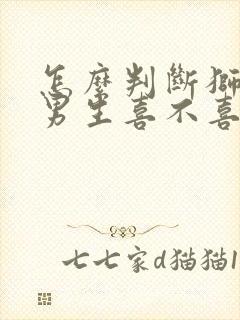 怎麼判斷獅
男生喜不喜
七七家d猫猫1